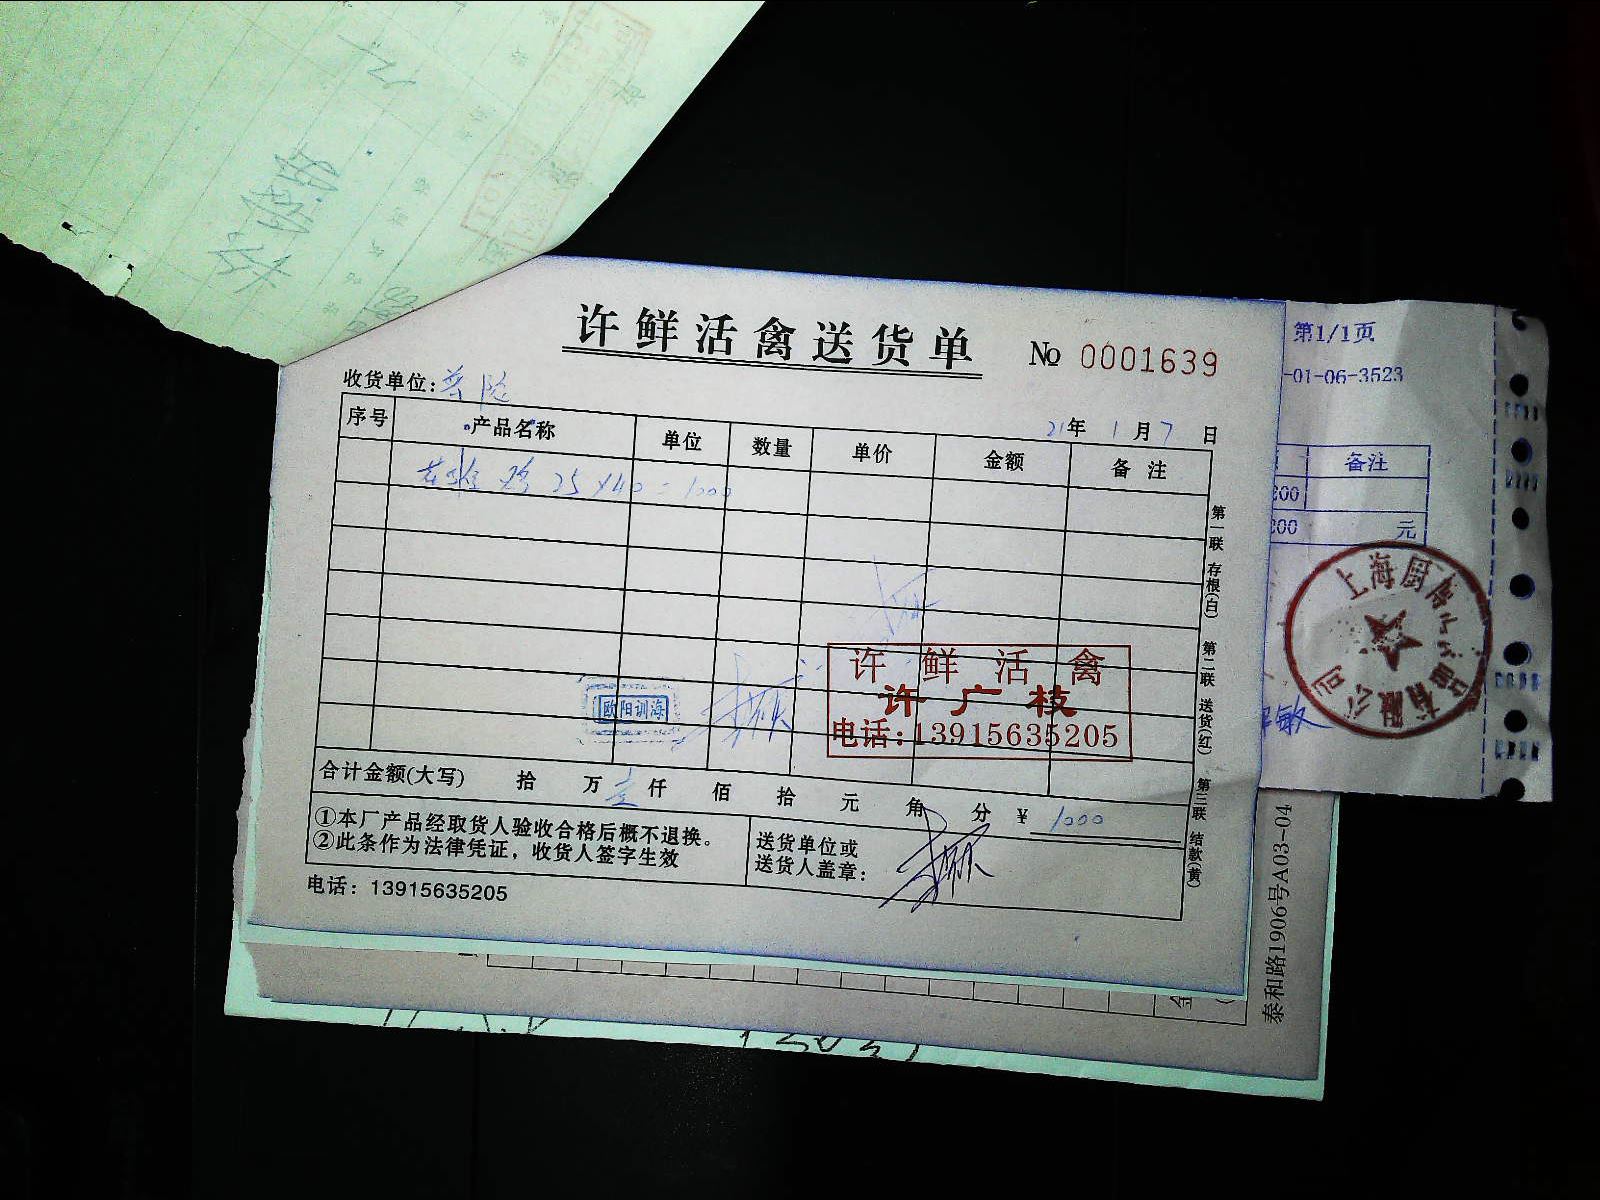 许鲜活禽送货单
No 0001639
收货单位:普陀
21年 1月 7日
序号 产品名称 单位 数量 单价 金额 备注
25×40=1000
第一联 存根(白) 第二联 送货(红) 第三联 结款(黄)
许鲜活禽
许广枝
电话:13915635205
欧阳训海
合计金额(大写) 拾 万 壹仟 佰 拾 元 角 分 ¥ 1000
①本厂产品经取货人验收合格后概不退换。
②此条作为法律凭证，收货人签字生效
送货单位或
送货人盖章:
电话: 13915635205
第1/1页
-01-06-3523
备注
200
200 元
上海厨
有限公司
敏
泰和路1906号A03-04